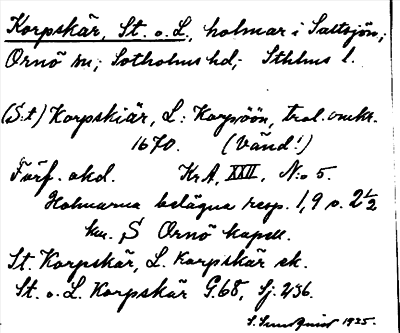 Korpskär, St. o. L., holmar i Saltsjön,
Ornö sn; Sotholms hd; Sthlms l.
(S:t) Korpskiär, L: Korpöön, trol. omkr.
1670. (Vänd!)
Förf. okd. KrA, XXII, N:o 5.
Holmarna belägna resp. 1,9 o. 2 1/2
km. S Ornö kapell.
St. Korpskär, L. Korpskär ek.
St. o. L. Korpskär G.68, Sj. 236.
S. 1925.